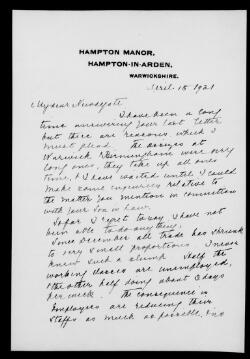 HAMPTON MANOR,
HAMPTON-IN-ARDEN,
WARWICKSHIRE.
15 1921
My dear Newdegate
I have been a long
time answering your last letter
but there are reasons which I
must plead. The assizes at
Warwick & Birmingham were very
long ones, they take up all ones
time, & I have waited until I could
make some inquiries relative to
the matter you mention in connection
with your Son in law.
So far I regret to say I have not
been able to do anything.
Since December all trade has shrunk
to very small proportions I never
knew such a slump. Half the
working classes are unemployed,
& the other half doing about 3 days
per week. The consequence is
Employers are reducing their
Staffs as much as possible, &